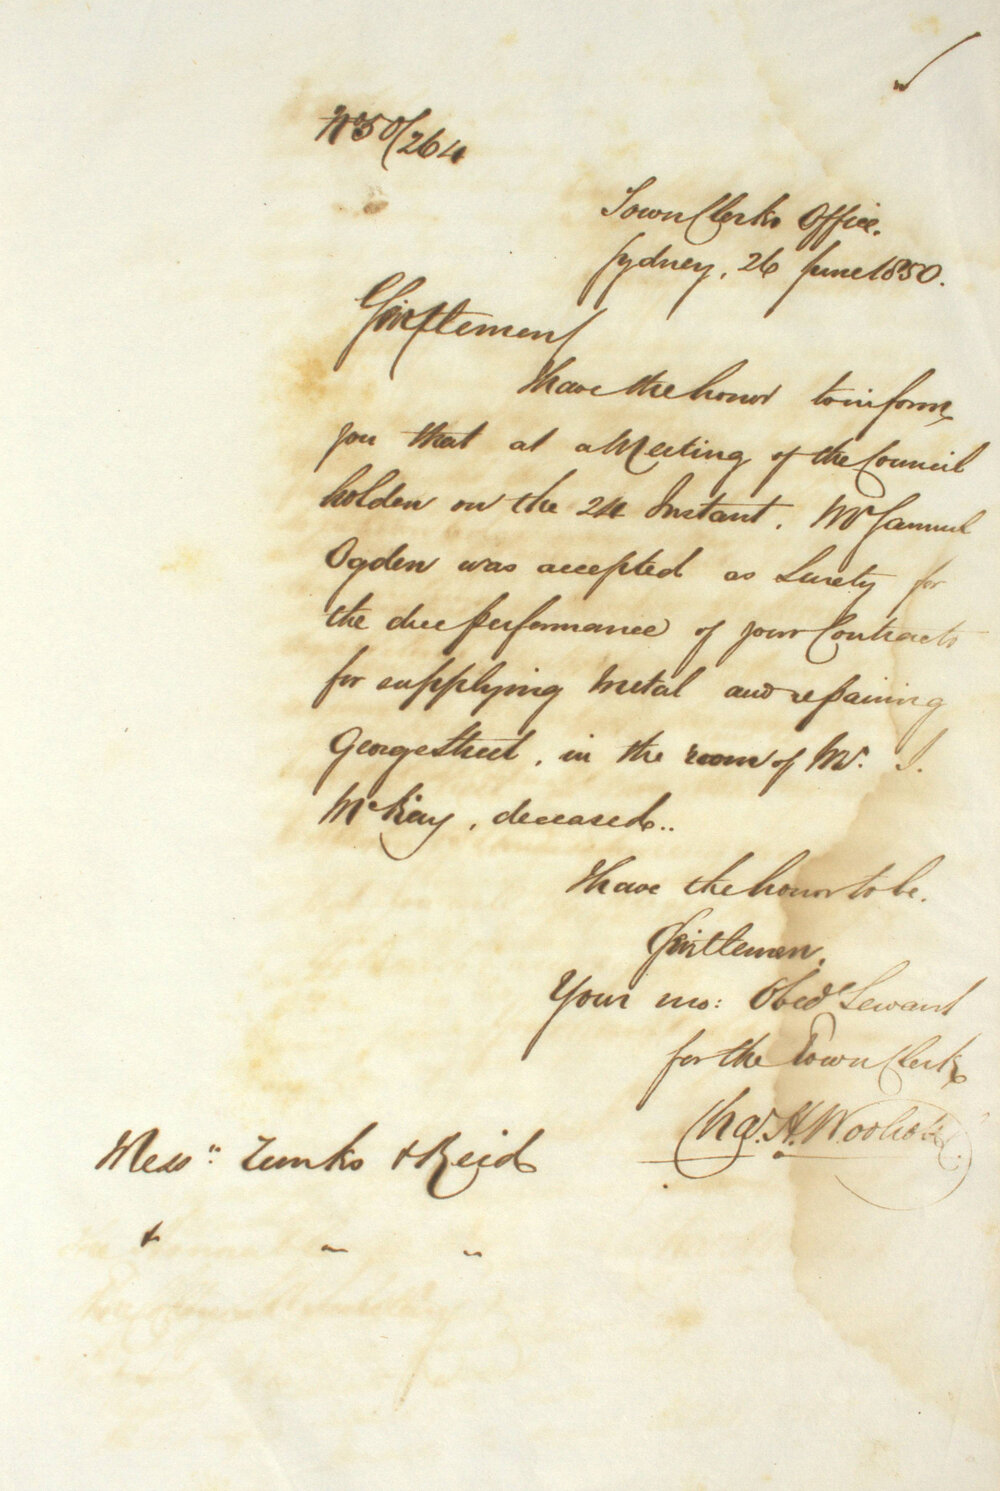 No 50/264
Town Clerks Office.
Sydney, 26 June 1850.
Gentlemen
I have the honor to inform
you that at a Meeting of the Council
holden on the 24 Instant, Mr Samuel
Ogden was accepted as Surety for
the due performance of your Contracts
for supplying Metal and repairing
George Street, in the room of Mr. J.
McKay, deceased..
I have the honor to be.
Gentlemen,
Your mo: Obed Servant
for the Town Clerk
Chas. H. Woolcott
Messrs: Zunks & Reid
& " "